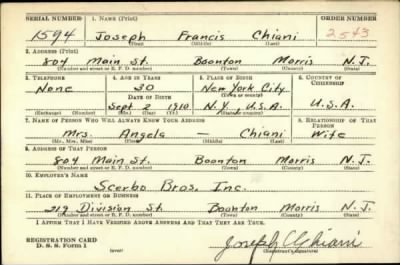 SERIAL NUMBER 1. NAME (Print) ORDER NUMBER
1594 Joseph Francis Chiani 2543
(First) (Middle) (Last)
2. ADDRESS (Print)
804 Main St. Boonton Morris N.J.
(Number and street or R. F. D. number) (Town) (County) (State)
3. TELEPHONE 4. AGE IN YEARS 5. PLACE OF BIRTH 6. COUNTRY OF CITIZENSHIP
None 30 New York City
DATE OF BIRTH (Town or county)
Sept 2 1910 N.Y. U.S.A. U.S.A.
(Exchange) (Number) (Mo.) (Day) (Yr.) (State or country)
7. NAME OF PERSON WHO WILL ALWAYS KNOW YOUR ADDRESS 8. RELATIONSHIP OF THAT PERSON
Mrs. Angela — Chiani Wife
(Mr., Mrs., Miss) (First) (Middle) (Last)
9. ADDRESS OF THAT PERSON
804 Main St. Boonton Morris N.J.
(Number and street or R. F. D. number) (Town) (County) (State)
10. EMPLOYER'S NAME
Scerbo Bros. Inc.
11. PLACE OF EMPLOYMENT OR BUSINESS
219 Division St Boonton Morris N.J.
(Number and street or R. F. D. number) (Town) (County) (State)
I AFFIRM THAT I HAVE VERIFIED ABOVE ANSWERS AND THAT THEY ARE TRUE.
REGISTRATION CARD
D. S. S. Form 1 (over) Joseph Chiani
(Registrant's signature)